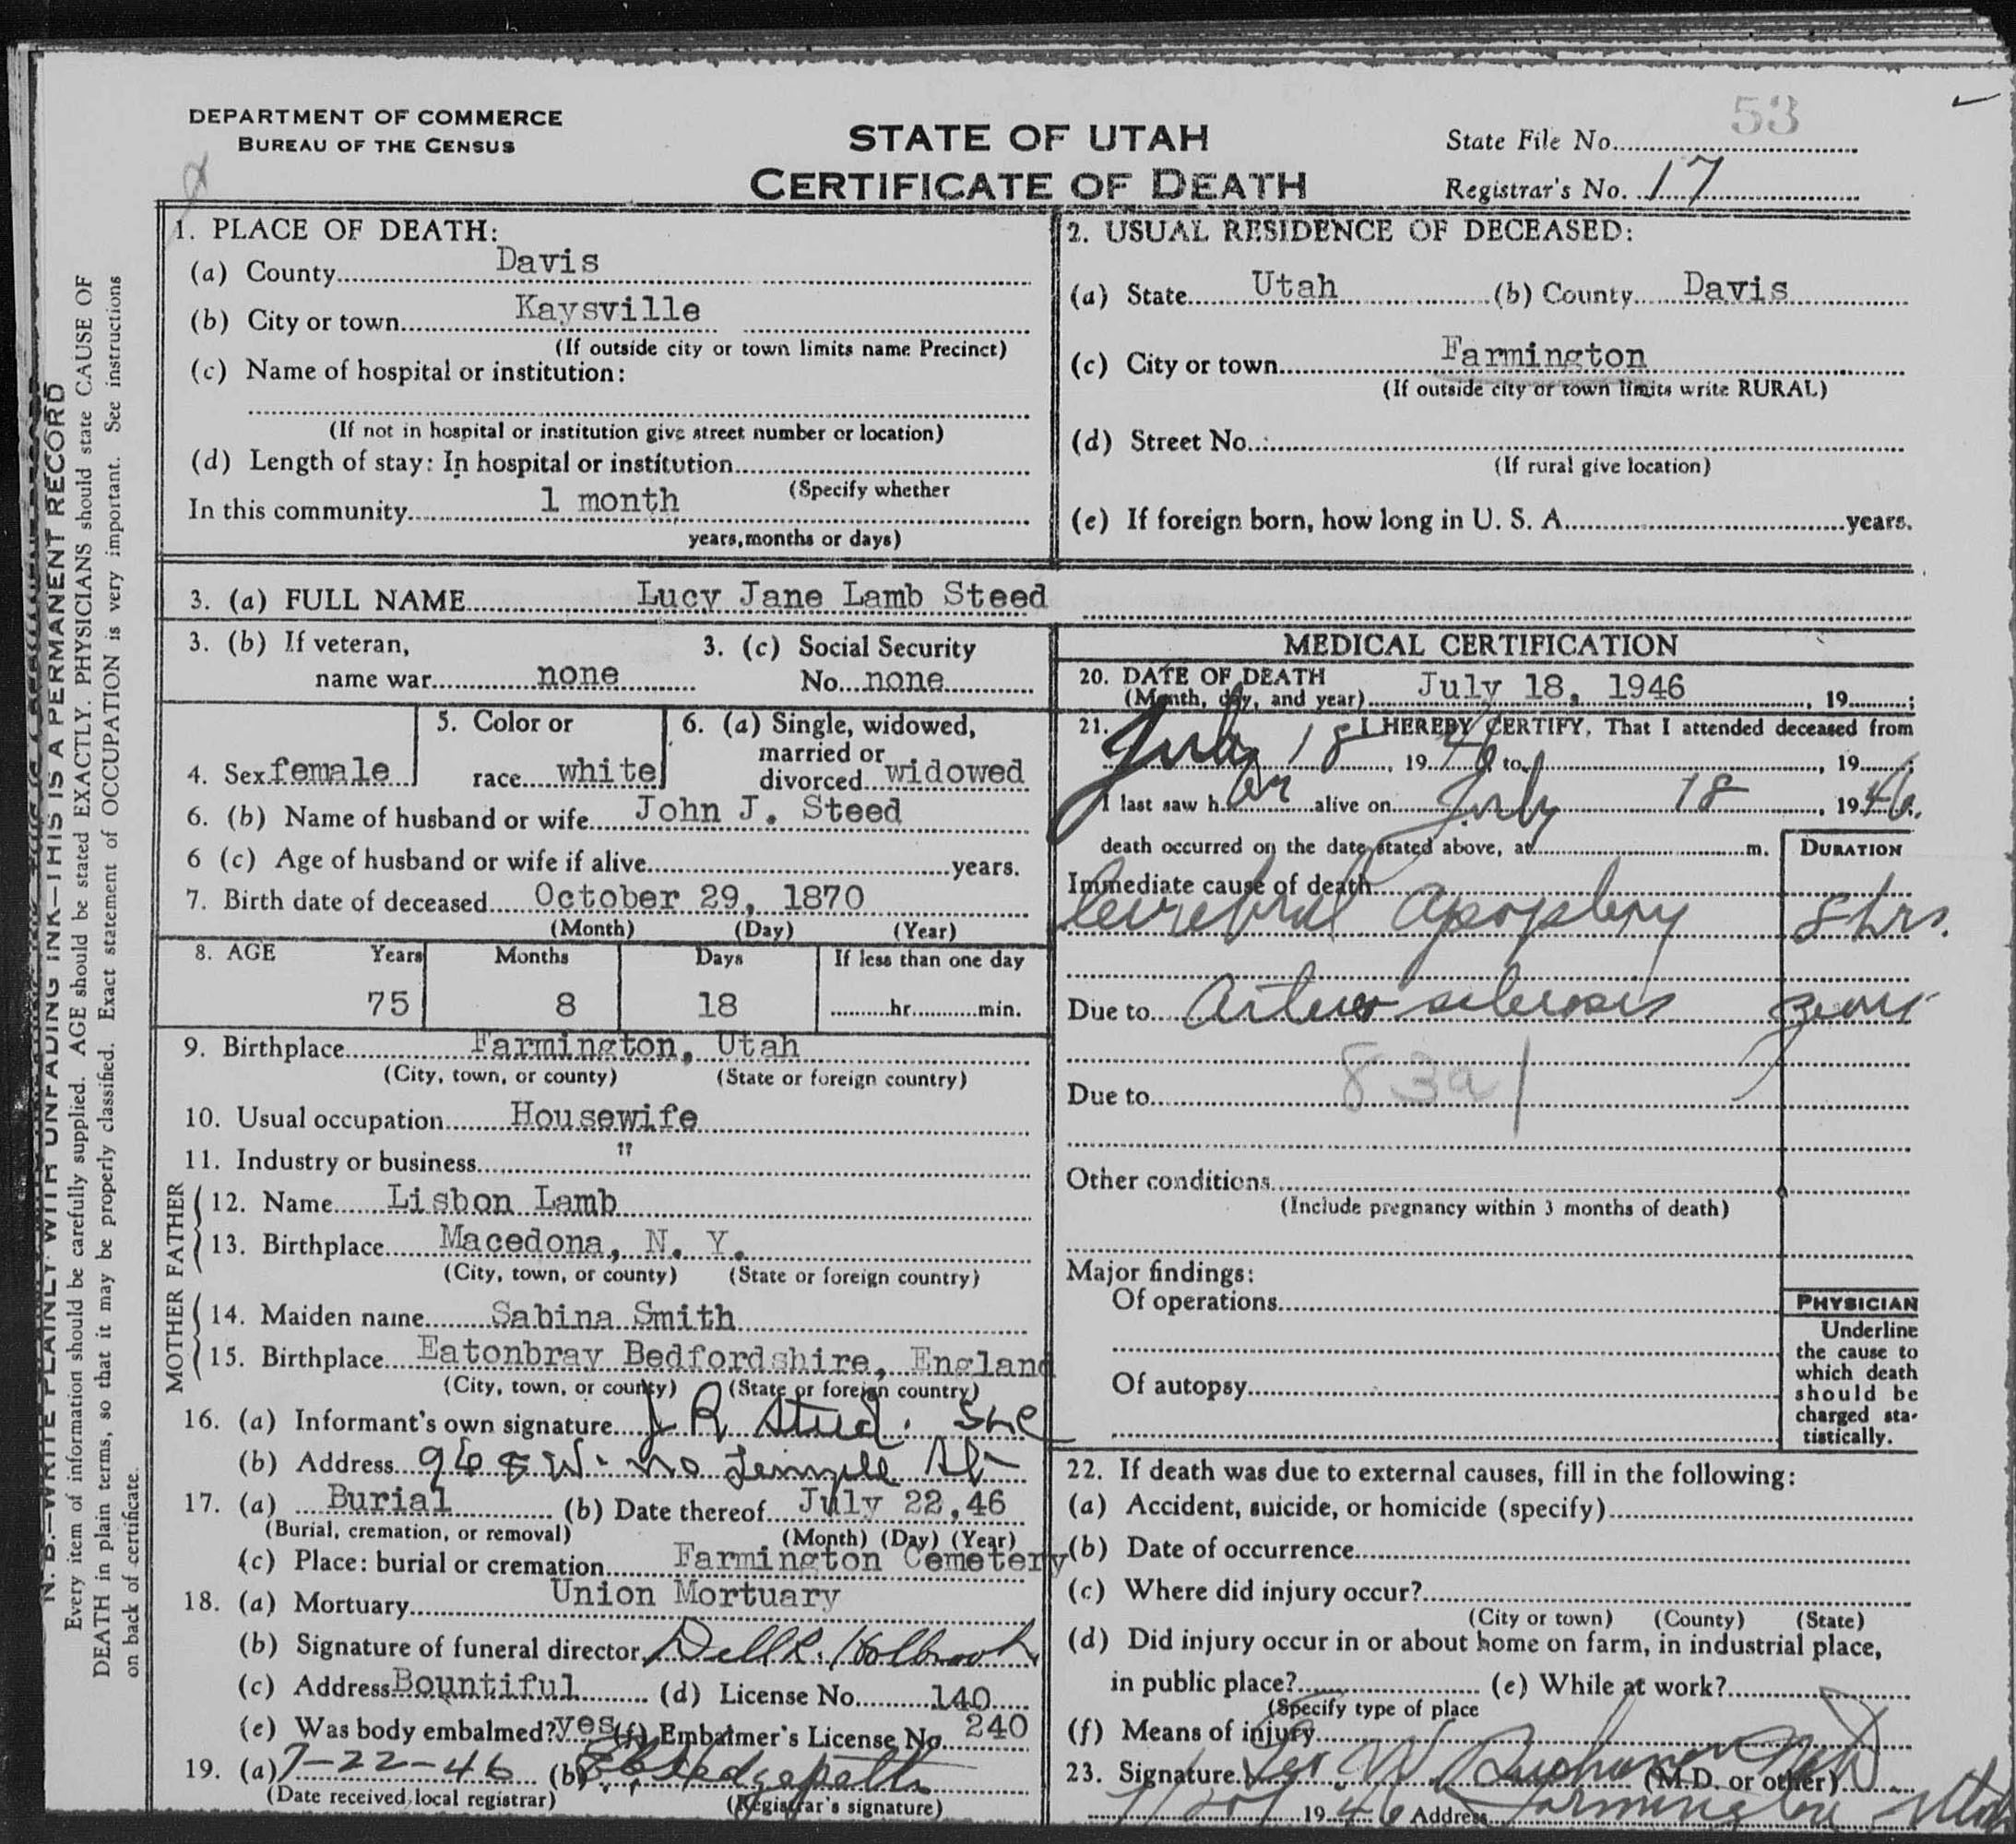 53
DEPARTMENT OF COMMERCE
BUREAU OF THE CENSUS
STATE OF UTAH
CERTIFICATE OF DEATH
State File No.
Registrar's No. 17
N. B.—WRITE PLAINLY WITH UNFADING INK—THIS IS A PERMANENT RECORD
Every item of information should be carefully supplied. AGE should be stated EXACTLY. PHYSICIANS should state CAUSE OF
DEATH in plain terms, so that it may be properly classified. Exact statement of OCCUPATION is very important. See instructions
on back of certificate.
1. PLACE OF DEATH:
(a) County Davis
(b) City or town Kaysville
(If outside city or town limits name Precinct)
(c) Name of hospital or institution:
(If not in hospital or institution give street number or location)
(d) Length of stay: In hospital or institution
(Specify whether
In this community 1 month
years, months or days)
2. USUAL RESIDENCE OF DECEASED:
(a) State Utah (b) County Davis
(c) City or town Farmington
(If outside city or town limits write RURAL)
(d) Street No.
(If rural give location)
(e) If foreign born, how long in U. S. A. years.
3. (a) FULL NAME Lucy Jane Lamb Steed
3. (b) If veteran,
name war none
3. (c) Social Security
No. none
4. Sex female
5. Color or
race white
6. (a) Single, widowed,
married or
divorced widowed
6. (b) Name of husband or wife John J. Steed
6 (c) Age of husband or wife if alive years.
7. Birth date of deceased October 29, 1870
(Month) (Day) (Year)
8. AGE Years Months Days If less than one day
75 8 18 hr. min.
9. Birthplace Farmington, Utah
(City, town, or county) (State or foreign country)
10. Usual occupation Housewife
11. Industry or business "
FATHER
12. Name Lisbon Lamb
13. Birthplace Macedona, N. Y.
(City, town, or county) (State or foreign country)
MOTHER
14. Maiden name Sabina Smith
15. Birthplace Eatonbray Bedfordshire, England
(City, town, or county) (State or foreign country)
16. (a) Informant's own signature J R Steed. SLC
(b) Address 968 W. no Temple St
17. (a) Burial (b) Date thereof July 22, 46
(Burial, cremation, or removal) (Month) (Day) (Year)
(c) Place: burial or cremation Farmington Cemetery
18. (a) Mortuary Union Mortuary
(b) Signature of funeral director Dell R. Holbrook
(c) Address Bountiful (d) License No. 140
(e) Was body embalmed? yes (f) Embalmer's License No. 240
19. (a) 7-22-46 (b)
(Date received local registrar) (Registrar's signature)
MEDICAL CERTIFICATION
20. DATE OF DEATH
(Month, day, and year) July 18, 1946, 19 ;
21. I HEREBY CERTIFY, That I attended deceased from
July 18, 1946 to , 19 ;
I last saw her alive on July 18, 1946.
death occurred on the date stated above, at m.
DURATION
Immediate cause of death
Cerebral Apoplexy 8 hrs.
Due to Arterio sclerosis years
Due to 83a1
Other conditions
(Include pregnancy within 3 months of death)
Major findings:
Of operations
Of autopsy
PHYSICIAN
Underline
the cause to
which death
should be
charged sta-
tistically.
22. If death was due to external causes, fill in the following:
(a) Accident, suicide, or homicide (specify)
(b) Date of occurrence
(c) Where did injury occur?
(City or town) (County) (State)
(d) Did injury occur in or about home on farm, in industrial place,
in public place? (e) While at work?
(Specify type of place
(f) Means of injury
23. Signature (M.D. or other)
1946 Address Farmington Utah